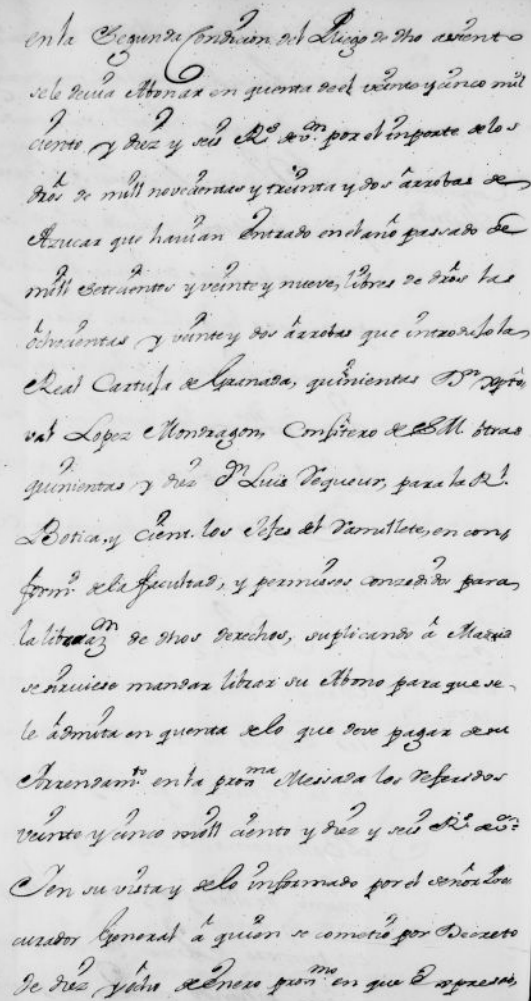 en la Segunda Condicion del Pliego de dho asiento
se le devia Abonar en quenta de el veinte y cinco mil
ciento y diez y seis Rs. de von. por el inporte de los
dros de mill novecientas y treinta y dos arrobas de
Azucar que havian Entrado en el año passado de
mill setecientos y veinte y nueve, libres de dros las
ochocientas y veinte y dos arrobas que introdujo la
Real Cartuja de Granada, quinientas Dn. Xpto
val Lopez Mondragon, Confitero de S M. otras
quinientas y diez Dn. Luis Requeur, para la Rl.
Botica, y cient. los Jefes del Ramillete, en con
formd. de la facultad, y permissos conzedidos para
la libraazn de dhos derechos, suplicando â Madrid
se sirviese mandar librar su Abono para que se
le âdmita en quenta de lo que deve pagar de su
Arrendamto. en la proxma Messada los referidos
veinte y cinco mill ciento y diez y seis Rs. de von.
Y en su vista y de lo informado por el señor Pro
curador General â quien se cometio por Decreto
de diez y ocho de Enero proxmo en que Expressa,